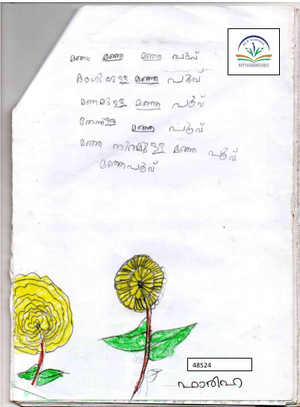 മഞ്ഞ മഞ്ഞ മഞ്ഞ പൂവ്
ഭംഗിയുള്ള മഞ്ഞ പൂവ്
മണമുള്ള മഞ്ഞ പൂവ്
തേനുള്ള മഞ്ഞ പൂവ്
മഞ്ഞ നിറമുള്ള മഞ്ഞ പൂവ്
മഞ്ഞപൂവ്
48524
ഫാരിഹ